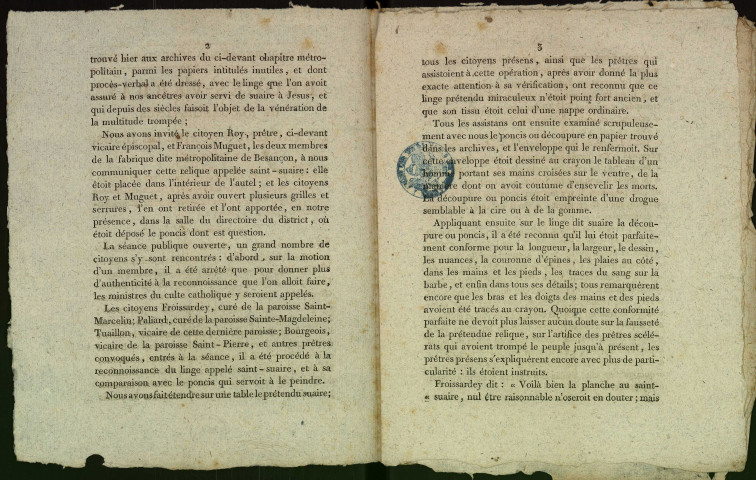 2
trouvé hier aux archives du ci-devant chapitre métro-
politain, parmi les papiers intitulés inutiles, et dont
procès-verbal a été dressé, avec le linge que l'on avoit
assuré à nos ancêtres avoir servi de suaire à Jesus, et
qui depuis des siècles faisoit l'objet de la vénération de
la multitude trompée ;
Nous avons invité le citoyen Roy, prêtre, ci-devant
vicaire épiscopal, et François Muguet, les deux membres
de la fabrique dite métropolitaine de Besançon, à nous
communiquer cette relique appelée saint-suaire : elle
étoit placée dans l'intérieur de l'autel ; et les citoyens
Roy et Muguet, après avoir ouvert plusieurs grilles et
serrures, l'en ont retirée et l'ont apportée, en notre
présence, dans la salle du directoire du district, où
étoit déposé le poncis dont est question.
La séance publique ouverte, un grand nombre de
citoyens s'y sont rencontrés : d'abord, sur la motion
d'un membre, il a été arrêté que pour donner plus
d'authenticité à la reconnoissance que l'on alloit faire,
les ministres du culte catholique y seroient appelés.
Les citoyens Froissardey, curé de la paroisse Saint-
Marcelin ; Paliard, curé de la paroisse Sainte-Magdeleine ;
Tuaillon, vicaire de cette dernière paroisse ; Bourgeois,
vicaire de la paroisse Saint-Pierre, et autres prêtres
convoqués, entrés à la séance, il a été procédé à la
reconnoissance du linge appelé saint-suaire, et à sa
comparaison avec le poncis qui servoit à le peindre.
Nous avons fait étendre sur une table le prétendu suaire ;
3
tous les citoyens présens, ainsi que les prêtres qui
assistoient à cette opération, après avoir donné la plus
exacte attention à sa vérification, ont reconnu que ce
linge prétendu miraculeux n'étoit point fort ancien, et
que son tissu étoit celui d'une nappe ordinaire.
Tous les assistans ont ensuite examiné scrupuleuse-
ment avec nous le poncis ou découpure en papier trouvé
dans les archives, et l'enveloppe qui le renfermoit. Sur
cette enveloppe étoit dessiné au crayon le tableau d'un
homme portant ses mains croisées sur le ventre, de la
manière dont on avoit coutume d'ensevelir les morts.
La découpure ou poncis étoit empreinte d'une drogue
semblable à la cire ou à de la gomme.
Appliquant ensuite sur le linge dit suaire la décou-
pure ou poncis, il a été reconnu qu'il lui étoit parfaite-
ment conforme pour la longueur, la largeur, le dessin,
les nuances, la couronne d'épines, les plaies au côté,
dans les mains et les pieds, les traces du sang sur la
barbe, et enfin dans tous ses détails ; tous remarquèrent
encore que les bras et les doigts des mains et des pieds
avoient été tracés au crayon. Quoique cette conformité
parfaite ne devoit plus laisser aucun doute sur la fausseté
de la prétendue relique, sur l'artifice des prêtres scélé-
rats qui avoient trompé le peuple jusqu'à présent, les
prêtres présens s'expliquèrent encore avec plus de parti-
cularité : ils étoient instruits.
Froissardey dit : « Voilà bien la planche au saint-
« suaire, nul être raisonnable n'oseroit en douter ; mais